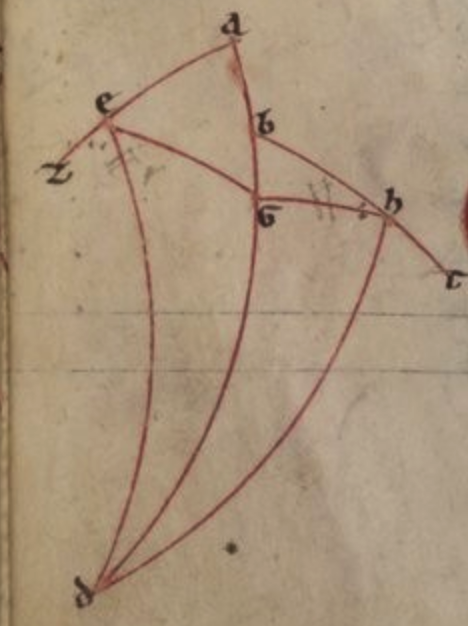 a
e
b
z
G
h
t
d